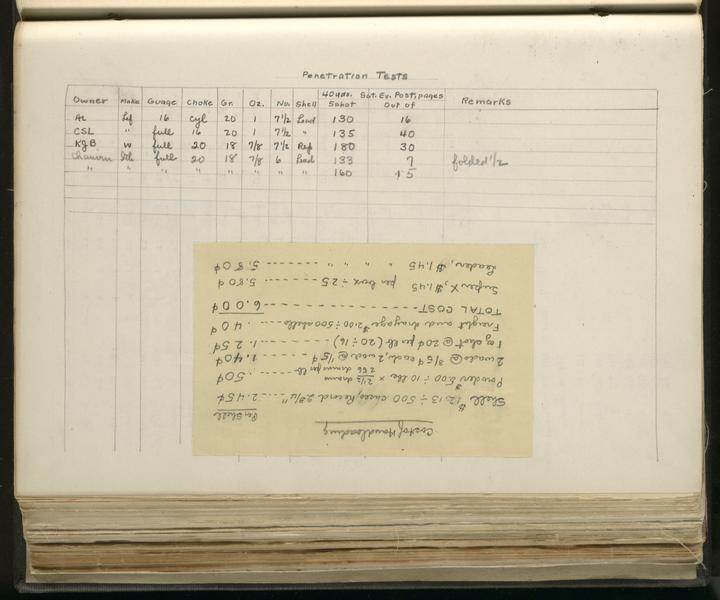 Penetration Tests
Owner Make Guage Choke Gr. Oz. No. Shell 40 yds. 5 shot Sat. Ev. Post, pages out of Remarks
AL Lef 16 cyl 20 1 7 1/2 Lead 130 16
CSL " full 16 20 1 7 1/2 " 135 40
KJB W full 20 18 7/8 7 1/2 Rep 180 30
Ith full 20 18 7/8 6 Lead 133 7 folded 1/2
" " " " " " " " 160 15
Cost of Handloading
Per Shell
Shell $12.13 ÷ 500 cases, Record 2 3/4" ..... 2.45¢
Powder $5.00 ÷ 10 lbs × 2 1/2 drams / 256 drams per lb ..... .50¢
2 wads @ 3/5¢ each, 2 wads @ 1/5¢ ...... 1.40¢
1 oz shot @ 20¢ per lb (20 ÷ 16) ------ 1.25¢
Freight and drayage $2.00 ÷ 500 shells .... .40¢
TOTAL COST ------------ 6.00¢
Super X, $1.45 per box ÷ 25 ------- 5.80¢
Leader, $1.45 " " " ------- 5.80¢